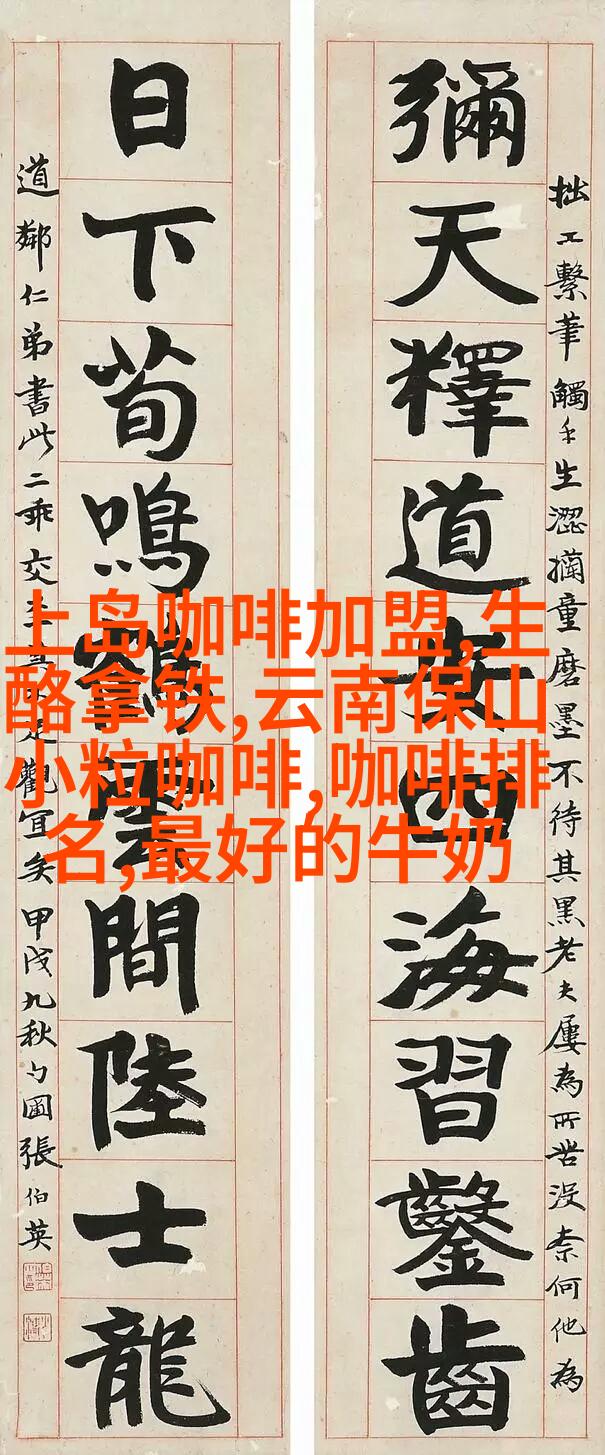 上岛咖啡加盟,生
酪拿铁,云南保山
小粒咖啡,咖啡排
名,最好的牛奶
拙工繫筆觸手生澀童磨墨不待其黑老夫屢為所苦沒柰何他為
彌天釋道安四海習鑿齒
日下荀鳴鶴雲間陸士龍
道鄰仁弟書此二乖交是觀宜矣甲戌九秋勺圃張伯英